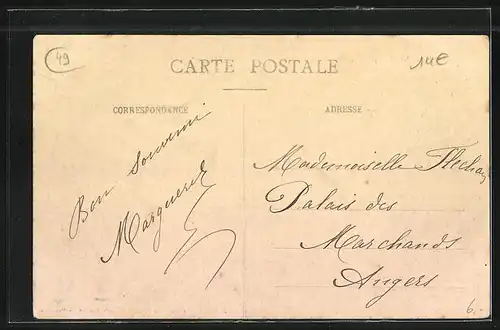 49
14€
CARTE POSTALE
CORRESPONDANCE
ADRESSE
Bon Souvenir
Mademoiselle
Palais des
Marchands
Angers
6.